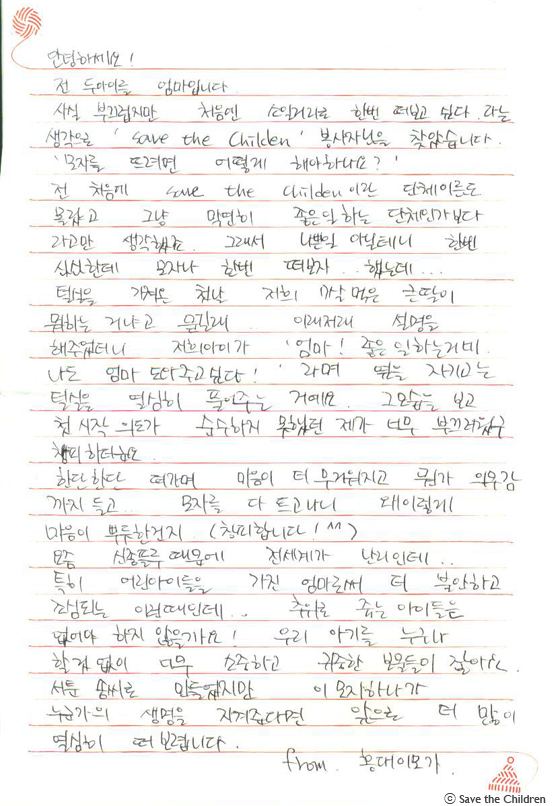 안녕하세요!
전 두아이를 엄마입니다.
사실 부끄럽지만 처음엔 소일거리로 한번 떠보고 싶다. 라는
생각으로 'save the Childen' 봉사자님을 찾았습니다.
'모자를 뜨려면 어떻게 해야하나요?'
전 처음에 save the childen 이란 단체이름도
몰랐고 그냥 막연히 좋은일 하는 단체인가보다
라고만 생각했죠. 그래서 나쁜일 아닐테니 한번
심심한데 모자나 한번 떠보자.. 했는데...
털실을 가져온 첫날 저희 7살 먹은 큰딸이
뭐하는 거냐고 묻길래.. 이래저래 설명을
해주었더니 저희아이가 '엄마! 좋은일하는거네.
나도 엄마 도와주고싶다!' 라며 옆을 지키고는
털실을 열심히 풀어주는 거예요. 그모습을 보고
첫 시작 의도가 순수하지 못했던 제가 너무 부끄러웠구
챙피하더라구요.
한단한단 떠가며 마음이 더 무거워지고 뭔가 의무감
까지 들고.. 모자를 다 뜨고나니 왜이렇게
마음이 뿌듯한건지. (창피합니다!^^)
요즘 신종플루 때문에 전세계가 난리인데..
특히 어린아이들을 가진 엄마로써 더 불안하고
조심되는 이런때인데.. 추위로 죽는 아이들은
없어야 하지 않을까요! 우리 아기들 누구나
할것 없이 너무 소중하고 귀중한 보물들이 잖아요.
서툰 솜씨로 만들었지만 이 모자하나가
누군가의 생명을 지켜준다면 앞으로 더 많이
열심히 떠 보렵니다.
from. 홍대이모가.
ⓒ Save the Children